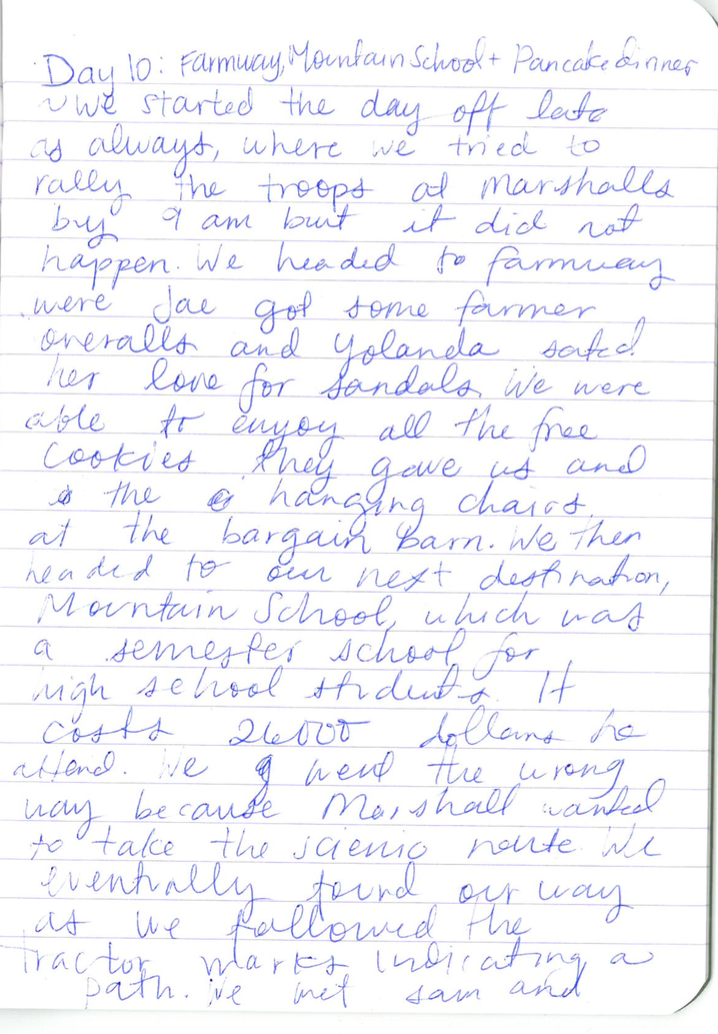 Day 10: Farmway, Mountain School + Pancake dinner
~ We started the day off late
as always, where we tried to
rally the troops at marshalls
by 9 am but it did not
happen. We headed to farmway
were Jae got some farmer
overalls and Yolanda sated
her love for sandals. We were
able to enyoy all the free
cookies they gave us and
the hanging chairs.
at the bargain barn. We then
headed to our next destination,
Mountain School, which was
a semester school for
high school students. It
costs 26000 dollars to
attend. We went the wrong
way because Marshall wanted
to take the scienic route. We
eventually found our way
as we followed the
tractor marks indicating a
path. We met sam and